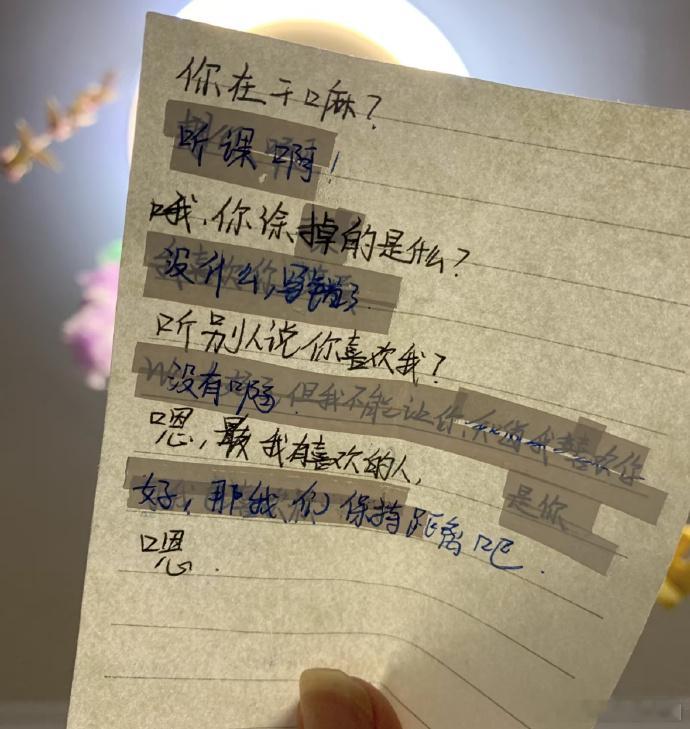 你在干嘛?
听课啊!
哦,你涂掉的是什么?
没什么,写错了.
听别人说你喜欢我?
没有啊. 但我不能让你知道我喜欢你
嗯,我有喜欢的人, 是你
好,那我们保持距离吧.
嗯.